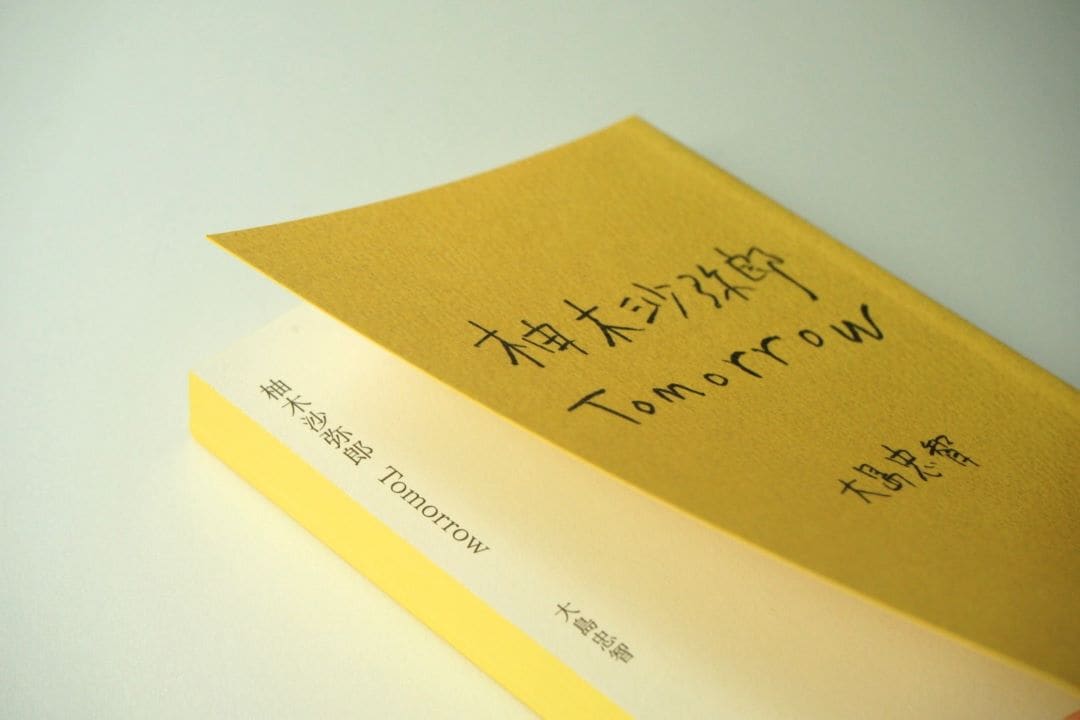 柚木沙弥郎
Tomorrow
大島忠智
柚木沙弥郎 Tomorrow
大島忠智